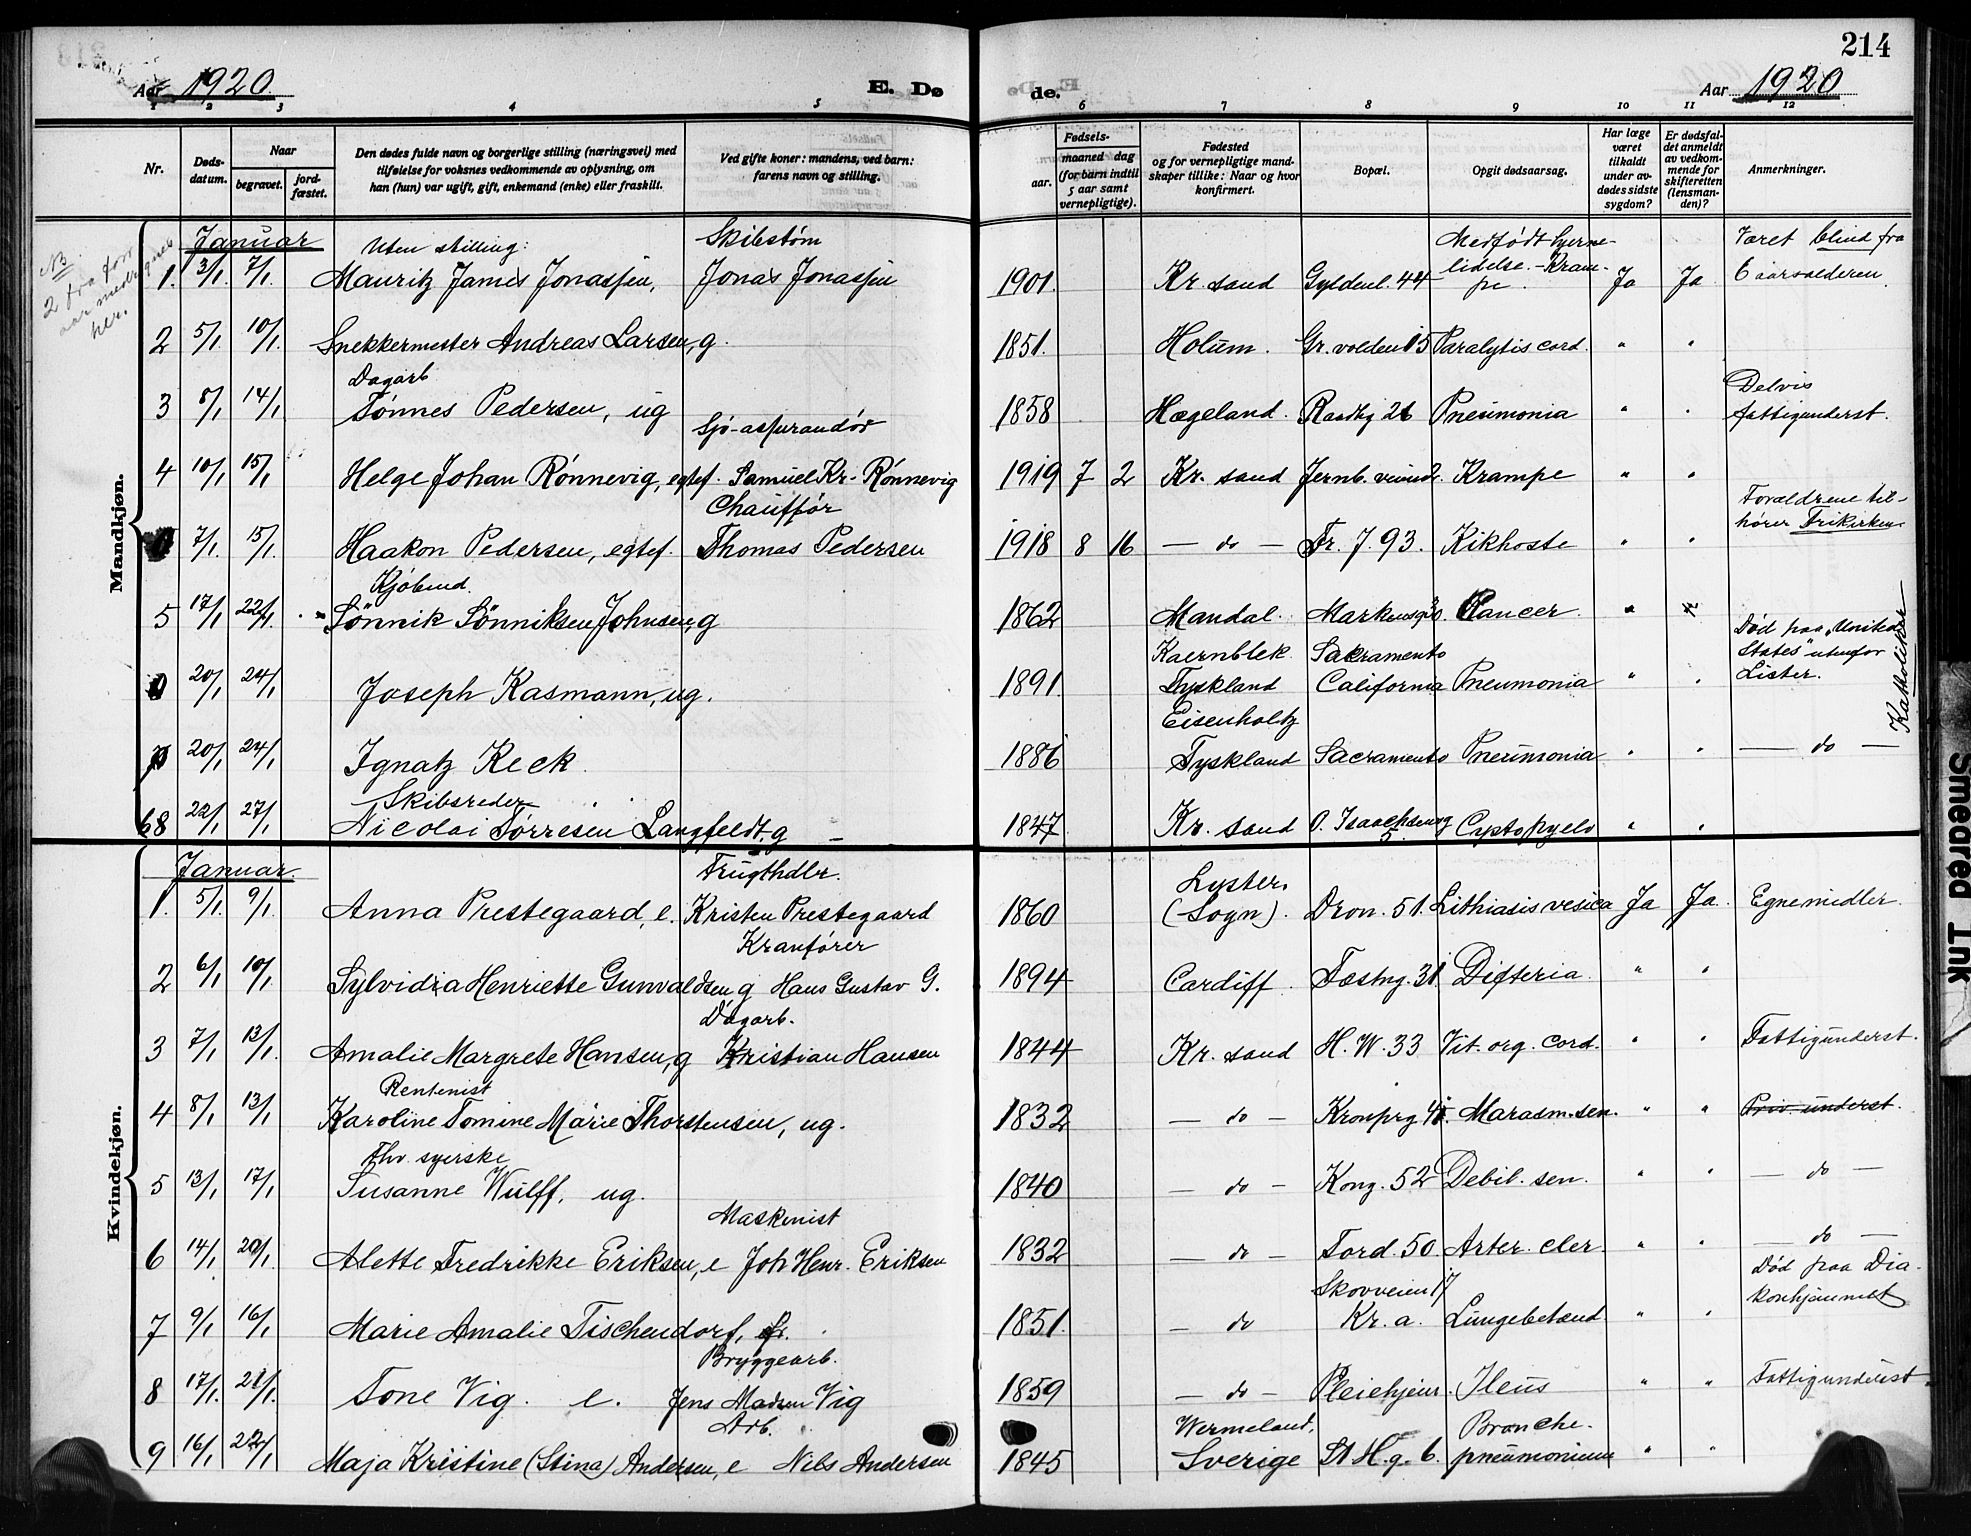 214
Aar 1920.
E. Dø
de.
Aar 1920
1 2 3 4 5 6 7 8 9 10 11 12
Nr.
Døds-
datum.
Naar
begravet.
jord-
fæstet.
Den dødes fulde navn og borgerlige stilling (næringsvei) med
tilføielse for voksnes vedkommende av oplysning, om
han (hun) var ugift, gift, enkemand (enke) eller fraskilt.
Ved gifte koner: mandens, ved barn:
farens navn og stilling.
Fødsels-
aar.
maaned dag
(for barn indtil
5 aar samt
vernepligtige).
Fødested
og for vernepligtige mand-
skaper tillike: Naar og hvor
konfirmert.
Bopæl.
Opgit dødsaarsag.
Har læge
været
tilkaldt
under av-
dødes sidste
sygdom?
Er dødsfal-
det anmeldt
av vedkom-
mende for
skifteretten
(lensman-
den)?
Anmerkninger.
Mandkjøn.
NB
2 fra forr
aar medregnes
her.
Januar
Uten stilling: Skibstøm Medfødt hjerne- Været blind fra
1. 3/1. 7/1. Mauritz James Jonassen, Jonas Jonassen 1901. Kr. sand Gyldenl. 44 lidelse. - Kram- Ja Ja 6 aarsalderen.
pe.
2 5/1. 10/1. Snekkermester Andreas Larsen, g. 1851. Holum. Gr. volden 15 Paralytis cord. " "
Dagarb Delvis
3 8/1 14/1 Tønnes Pedersen, ug 1858 Hægeland. Raadhg 26 Pneumonia " " fattigunderst.
Sjø-aspirandør
4 10/1 15/1 Helge Johan Rønnevig, egtef. Samuel Kr. Rønnevig 1919 7 2 Kr. sand Jernb. Krampe " "
Chauffør Forældrene til-
7/1. 15/1 Haakon Pedersen, egtef. Thomas Pedersen 1918 8 16 — do — Fr. 7. 93. Kikhoste " " hører Frikirken
Kjøbmd.
5 17/1 22/1. Sønnik Sønniksen Johnsen, g 1862 Mandal. Cancer. " "
Kaernblek Sacramento Død paa "United
States" utenfor
20/1 24/1 Joseph Kasmann, ug. 1891 Tyskland California Pneumonia " " Lister.
Katholiker
Eisenholtz
20/1 24/1 Ignatz Keck. 1886 Tyskland Sacramento Pneumonia " " — do —
Skibsreder
68 22/1 27/1 Nicolai Tørresen Langfeldt, g 1847 Kr. sand O. Isaachsensg Cystopyelo " "
5.
Kvindekjøn.
Januar
Frugthdlr. Lyster,
1. 5/1. 9/1. Anna Prestegaard, e. Kristen Prestegaard 1860 (Sogn). Dron. 51. Lithiasis vesica Ja Ja. Egne midler.
Kranfører
2 6/1 10/1 Sylvidia Henriette Gunvaldsen g Hans Gustav G. 1894 Cardiff. Festng. 31 Difteria " "
Dagarb.
3 7/1 13/1. Amalie Margrete Hansen, g Kristian Hansen 1844 Kr. sand H. W. 33 Vit. org. cord. " " Fattigunderst.
Rentenist
4 8/1 13/1 Karoline Tomine Marie Thorstensen, ug. 1832 — do — Kronprg Marasm. sen. " " Priv. underst.
Fhv. syerske
5 13/1 17/1 Susanne Wulff, ug. 1840 — do — Kong. 52 Debil. sen. " " — do —
Maskinist
6 14/1 20/1 Alette Fredrikke Eriksen, e Joh Henr. Eriksen 1832 — do — Tord. 50 Arter. cler. " " — do —
Skovveien 17 Død paa Dia-
7 9/1 16/1 Marie Amalie Tischendorf, fr. 1851. — do Kr. a. Lungebetænd " " konhjemmet
Bryggearb.
8 17/1. 21/1. Tone Vig. e. Jens Madsen Vig 1859 — do — Pleiehjem. Ileus " " Fattigunderst.
Arb. Wermeland, Bronche-
9 16/1 22/1 Maja Kristine (Stina) Andersen, e Nils Andersen 1845 Sverige St H. g. 6. pneumonium " "
Smeared Ink